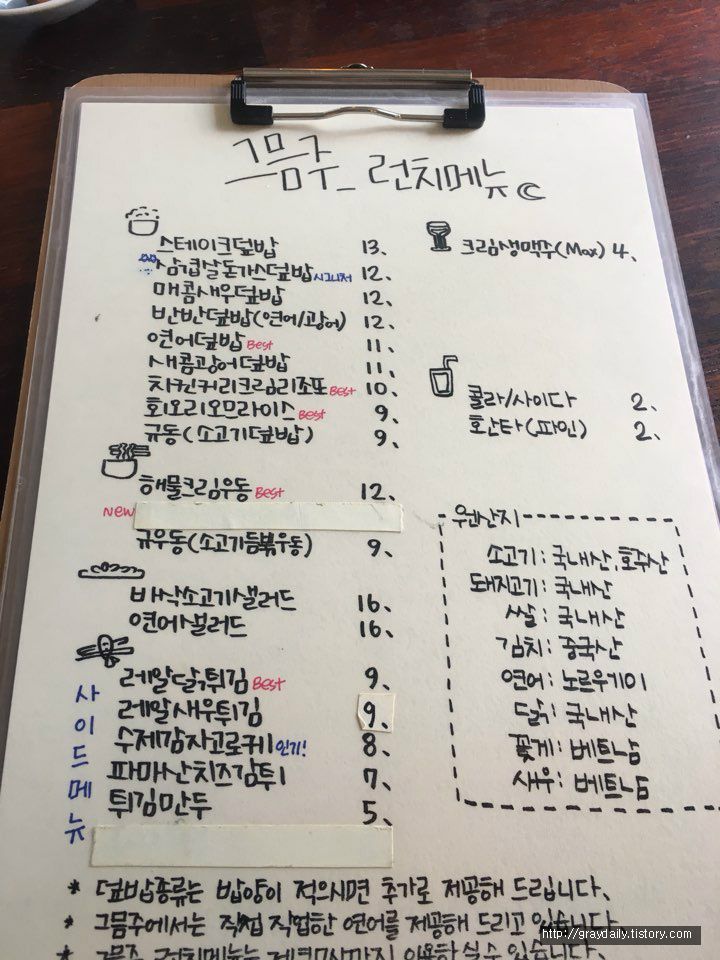 그믐주_ 런치메뉴
스테이크덮밥 13.
삼겹살돈가스덮밥 시그니처 12.
매콤새우덮밥 12.
반반덮밥(연어/광어) 12.
연어덮밥 Best 11.
새콤광어덮밥 11.
치킨커리크림리조또 Best 10.
회오리오므라이스 Best 9.
규동(소고기덮밥) 9.
해물크림우동 Best 12.
New
규우동(소고기듬뿍우동) 9.
바삭소고기샐러드 16.
연어샐러드 16.
사이드메뉴
레알닭튀김 Best 9.
레알새우튀김 9.
수제감자고로케 인기! 8.
파마산치즈감튀 7.
튀김만두 5.
크림생맥주(Max) 4.
콜라/사이다 2.
환타(파인) 2.
원산지
소고기: 국내산, 호주산
돼지고기: 국내산
쌀: 국내산
김치: 중국산
연어: 노르웨이
닭: 국내산
꽃게: 베트남
새우: 베트남
* 덮밥종류는 밥양이 적으시면 추가로 제공해 드립니다.
* 그믐주에서는 직접 작업한 연어를 제공해 드리고 있습니다.
* 그믐주 런치메뉴는 이용하실수 있습니다.
http://graydaily.tistory.com